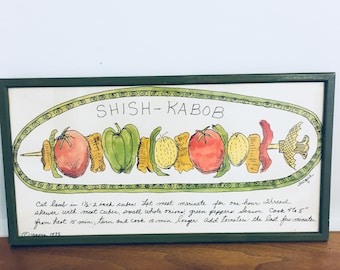 SHISH-KABOB
Cut lamb in 1½-2 inch cubes. Let meat marinate for one hour. Thread
skewer with meat cubes, small whole onions, green peppers. Season. Cook 4 to 5"
from heat 15 min, turn and cook 15 min longer. Add tomatoes the last few minutes.
1973